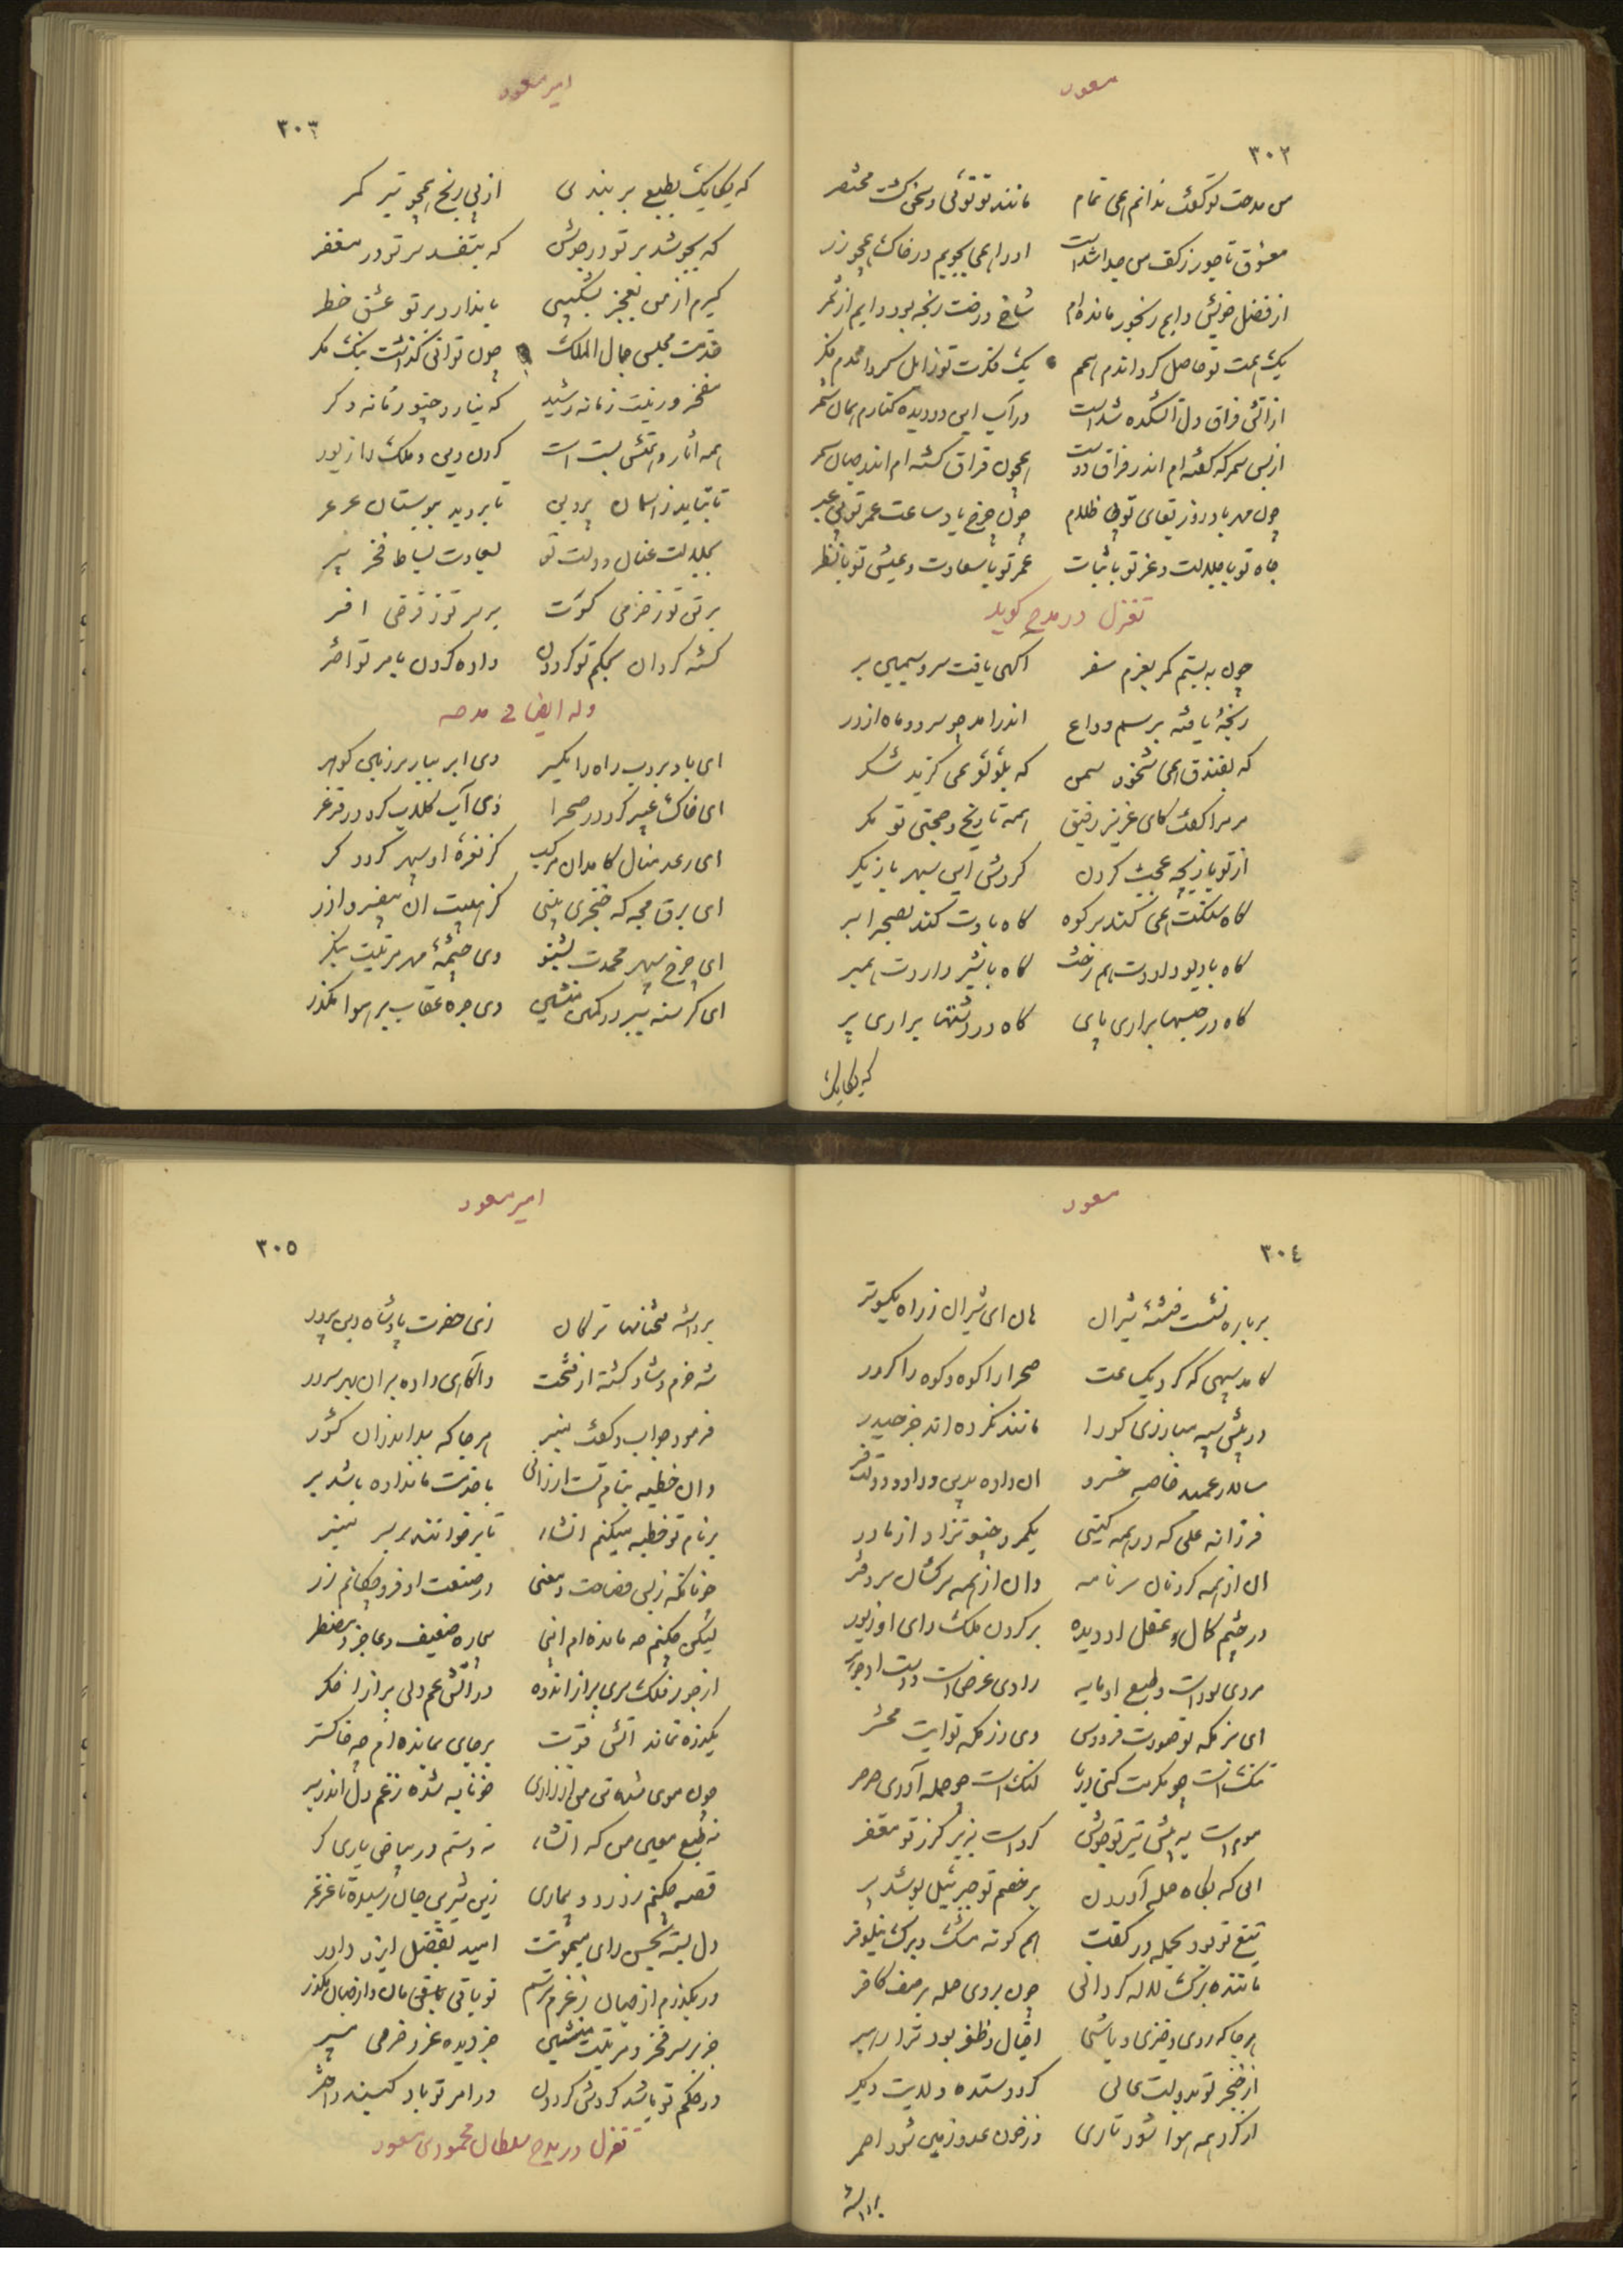 مسعود
۳۰۲
من مدحت تو گفت ندانم همی تمام مانند تو توئی و سخن گشت مختصر
معشوق تا چو زر ز کف من جدا شداست او را همی بجویم در خاک همچو زر
از فضل خویش دایم رنجور مانده ام شاخ درخت رنجه بود دایم از ثمر
یک همت تو حاصل گرداندم همم یک فکرت تو زایل
از آتش فراق دل آتشکده شداست در آب این دو دیده کنارم
از بس سمر که گفته ام اندر فراق دوست همچون فراق گشته ام اندر جهان سمر
چون مهر باد روز بقای تو بی ظلام چون چرخ باد ساعت عمر تو بی عبر
جاه تو با جلالت و عز تو با ثبات عمر تو با سعادت و عیش تو با نظر
تغزل در مدح گوید
چون به بستم کمر بعزم سفر آگهی یافت سرو سیمین بر
رنجه یافته برسم وداع اندر آمد چو سرو و ماه از در
که بفندق همی شخود سمن که بلؤلؤ همی گزید شکر
مر مرا گفت کای عزیز رفیق همه تاریخ و محنتی تو مگر
از تو بازیچه عجب کردن گردش این سپهر بازیگر
گاه سنگت همی کند بر کوه گاه بادت کند بصحرا بر
گاه با دیو داردت هم رخت گاه با شیر داردت همبر
گاه در حبسها بداری پای گاه در دشتها براری پر
که یکایک
امیر مسعود
۳۰۳
که یکایک بطبع بر بندی از پی رنج همچو تیر کمر
که بجوشد بر تو در جوشن که بتفسد سر تو در مغفر
گیرم از من بعجز بشکیبی یا ندارد بر تو عشق خطر
خدمت مجلس جمال الملک چون توانی گذاشت نیک نگر
مفخر و زینت زمانه رشید که نیارد چنو زمانه دگر
همه آثار و همتش بست است گردن دین و ملک را زیور
تا بتابد ز آسمان پروین تا بروید ببوستان عرعر
بجلالت عنان دولت تو بسعادت بساط فخر سپر
بر تن تو ز خرمی کسوت بر سر تو ز فرخی افسر
گشته گردان بحکم تو گردون داده گردن بامر تو اختر
وله ایضا فی مدحه
ای باد بروب راه را یکسر وی ابر ببار بر زمین گوهر
ای خاک عبیر گرد در صحرا وی آب گلاب گرد در فرغر
ای رعد منال کامد آن مرکب کز نعره او سپهر گردد کر
ای برق مجه که خنجری بینی کز هیبت آن بیفسرد آذر
ای چرخ سپهر محمدت بشنو وی چشمه مهر مرتبت بنگر
ای گرسنه شیر در کمین منشین وی جره عقاب بر هوا مگذر
مسعود
۳۰۴
بر باره نشست فتنه شیران هان ای شیران ز راه یکسوتر
کامد سپهی که کرد یک ساعت صحرا را کوه و کوه را کردر
در پیش سپه مبارزی کو را مانند نکرده اند جز حیدر
سالار عمید خاصه خسرو آن داده بدین و داد و دولت فر
فرزانه علی که در همه گیتی یک مرد چنو نزاد از مادر
آن از همه گردنان سرنامه وان از همه سرکشان سر دفتر
در چشم کمال و عقل او دیده بر گردن ملک رای او زیور
مردی بود است و طبع او مایه رادی عرض است و دست او جوهر
ای بزمگه تو صورت فردوس وی رزمگه تو آیت محشر
تنک است چو مکرمت کنی دریا لنگ است چو حمله آوری صرصر
موم است به پیش تیر تو جوشن گرد است بزیر گرز تو مغفر
آنی که بگاه حمله آوردن بر خصم تو جبرئیل پوشد پر
تیغ تو بود بحمله در کفت هم گونه مشک و برگ نیلوفر
ماننده برگ لاله گردانی چون بروی حمله بر صف کافر
هر جا که روی و خیزی و باشی اقبال و ظفر بود ترا رهبر
از خنجر تو بدولت عالی گردد ستده ولایت دیگر
از گرد همه هوا شود تاری وز خون عدو زمین شود احمر
برداشته
امیر مسعود
۳۰۵
برداشته فتحنامها ترکان زی حضرت پادشاه دین پرور
شه خرم و شاد گشته از فتحت وآگاهی داده بران بهر سرور
فرمود جواب و گفت بنیز هر جا که بداند زان کشور
وان خطبه بنام تست ارزانی با خدمت ما نداده باشد بر
بر نام تو خطبه میکنم انشاء تا برخوانند بر سر منبر
جز نانکه ز بس فصاحت و معنی در صنعت او فرو چکانم زر
لیکن چکنم چه مانده ام اینجا بیچاره ضعیف و عاجز و مضطر
از جور فلک سری پر از انده در آتش غم دلی پر از اخگر
یکذره نماند آتش قوت بر جای بمانده ام چه خاکستر
چون موی شده تن من از زاری خونابه شده ز غم دل اندر بر
نه طبع معین من که انشاء نه دستم در بیاض یاری گر
قصه چکنم ز درد و بیماری زین شیرین جان رسیده تا غرغر
دل بسته بحسن رای میمونت امید بفضل ایزد داور
ور بگذرم از جهان ز غم رستم تو باقی مان و از جهان مگذر
جز بر سر فخر و مرتبت منشین جز دیده عز و خرمی مسپر
در حکم تو باشد گردش گردون در امر تو باد کمینه و اختر
تغزل در مدح سلطان محمود بن مسعود